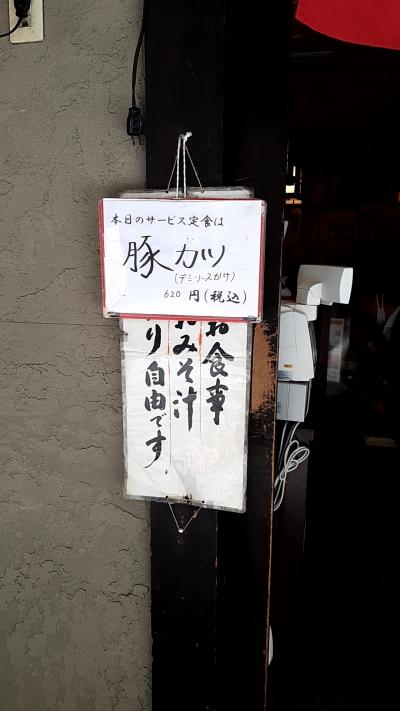 本日のサービス定食は
豚カツ
(デミソースかけ)
620円(税込)
お食事
みそ汁
り自由です。